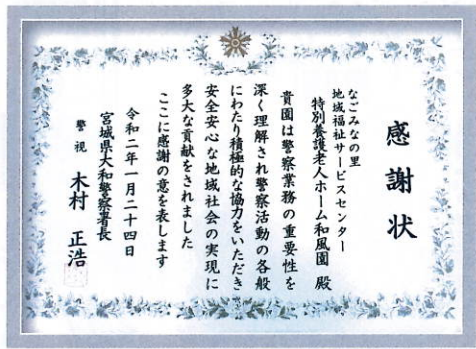 感謝状
なごみなの里
地域福祉サービスセンター
特別養護老人ホーム和風園 殿
貴園は警察業務の重要性を
深く理解され警察活動の各般
にわたり積極的な協力をいただき
安全安心な地域社会の実現に
多大な貢献をされました
ここに感謝の意を表します
令和二年一月二十四日
宮城県大和警察署長
警視 木村 正浩